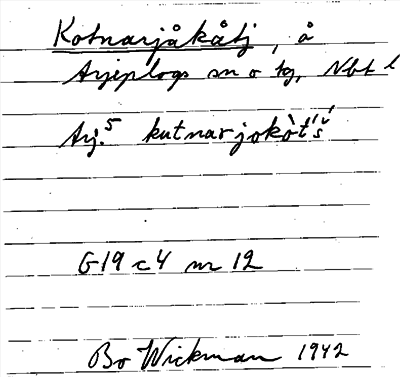 Kotnarjåkåtj, å
Arjeplogs sn o tg, Nbt l
Arj.⁵ kutnarjokòt́š́
G19 c4 nr 12
Bo Wickman 1942